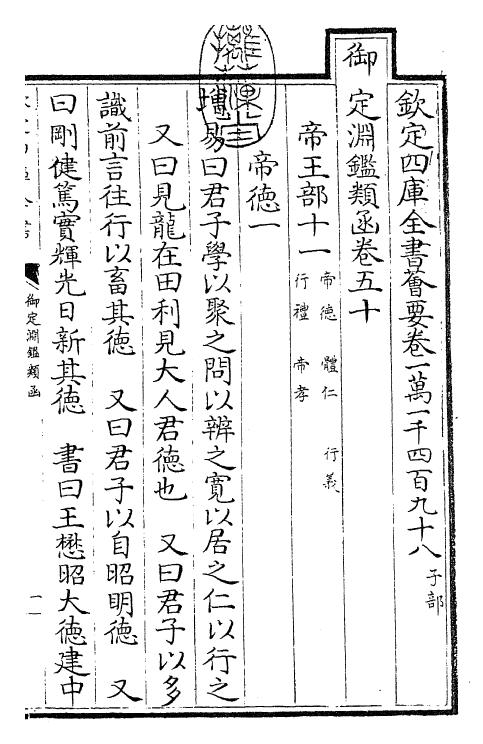 欽定四庫全書薈要卷一萬一千四百九十八子部
御定淵鑑類函卷五十
帝王部十一帝德 體仁 行義
行禮 帝孝
帝德一
增易曰君子學以聚之問以辨之寬以居之仁以行之
又曰見龍在田利見大人君德也 又曰君子以多
識前言往行以畜其德 又曰君子以自昭明德 又
曰剛健篤實輝光日新其德 書曰王懋昭大德建中
御定淵鑑類函
一